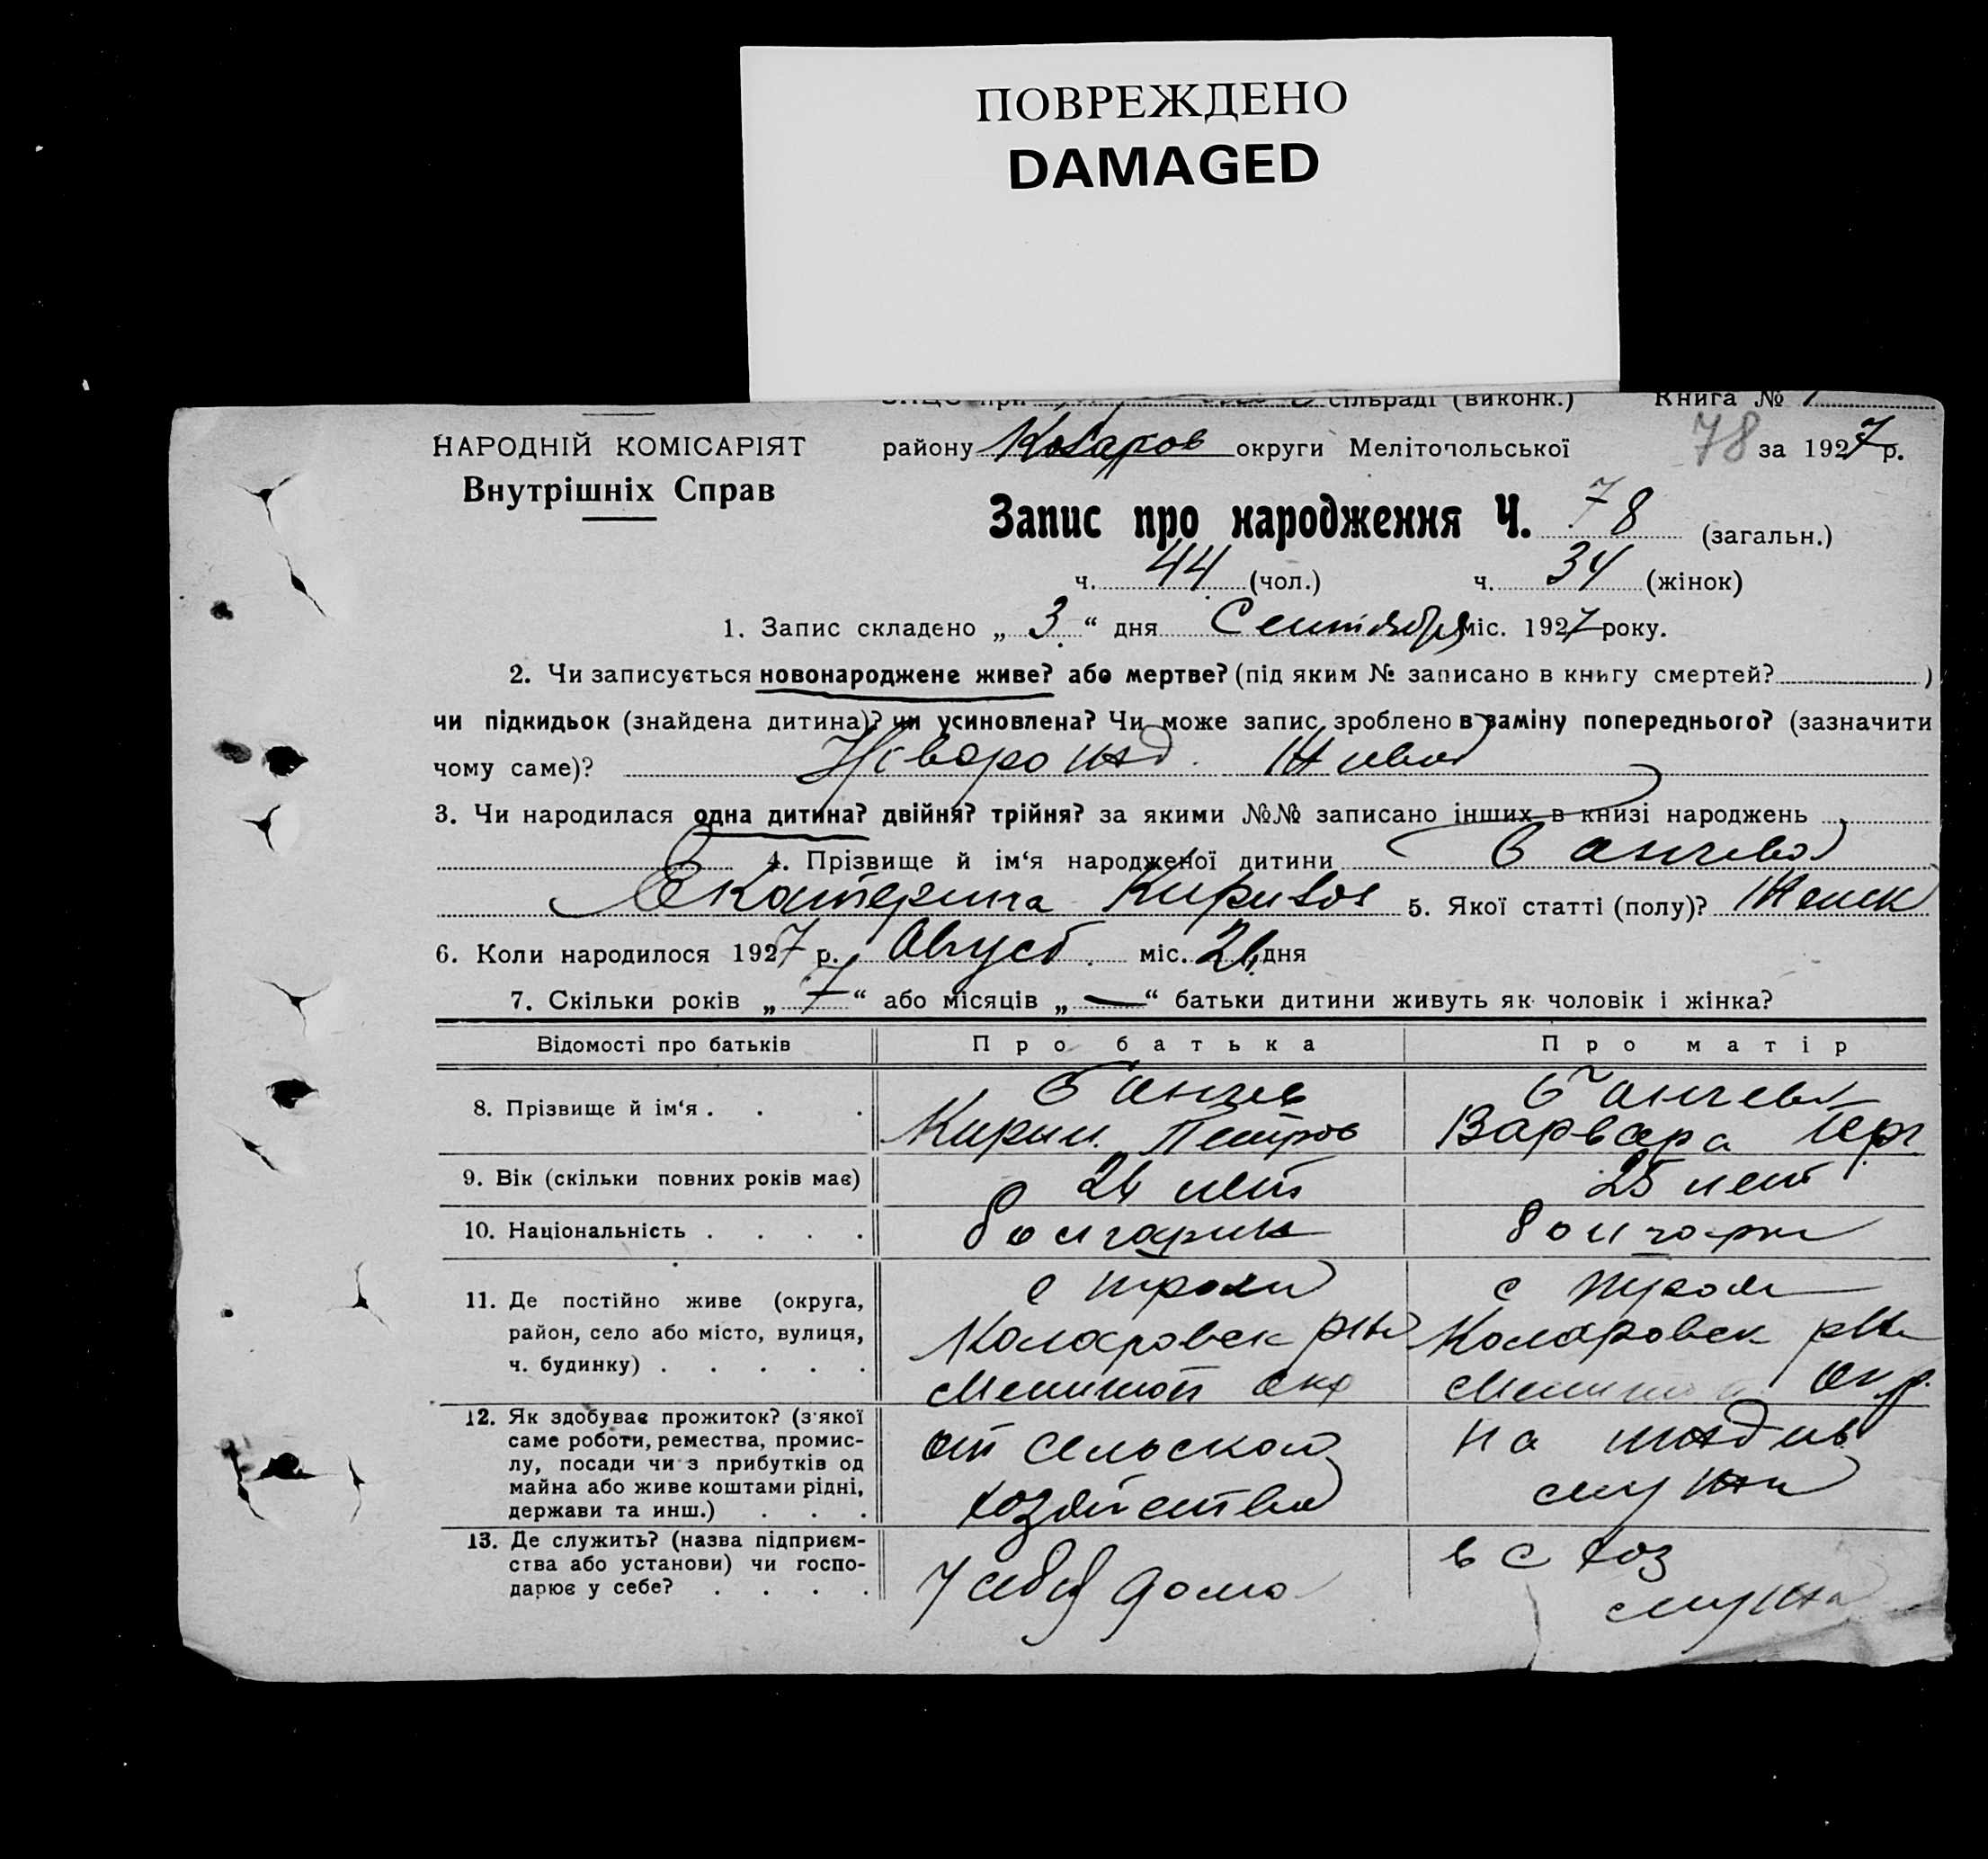 ПОВРЕЖДЕНО
DAMAGED
сільраді (виконк.) Книга № 1
НАРОДНІЙ КОМІСАРІЯТ району Коларов округи Мелітопольської 78 за 1927 р.
Внутрішніх Справ
Запис про народження Ч. 78 (загальн.)
ч. 44 (чол.) ч. 34 (жінок)
1. Запис складено „ 3 “ дня Сентября міс. 1927 року.
2. Чи записується новонароджене живе? або мертве? (під яким № записано в книгу смертей? )
чи підкидьок (знайдена дитина)? чи усиновлена? Чи може запис зроблено в заміну попереднього? (зазначити
чому саме)? живой
3. Чи народилася одна дитина? двійня? трійня? за якими №№ записано інших в книзі народжень
4. Прізвище й ім‘я народженої дитини
Екатерина 5. Якої статті (полу)? Женск
6. Коли народилося 1927 р. Август міс. дня
7. Скільки років „ 7 “ або місяців „ — “ батьки дитини живуть як чоловік і жінка?
Відомості про батьків Про батька Про матір
8. Прізвище й ім‘я . . . Кирил Петров Варвара
9. Вік (скільки повних років має) лет 25 лет
10. Національність . . . . болгарин болгарк
11. Де постійно живе (округа, с с
район, село або місто, вулиця, Коларовск рна Коларовск рна
ч. будинку) . . . . . Мелитоп окр Мелитоп окр.
12. Як здобуває прожиток? (з якої
саме роботи, ремества, промис- от сельского на иждив
лу, посади чи з прибутків од
майна або живе коштами рідні, хозяйства мужа
держави та инш.) . . .
13. Де служить? (назва підприєм- в с хоз
ства або установи) чи госпо- у себя дома
дарює у себе? . . . . мужа